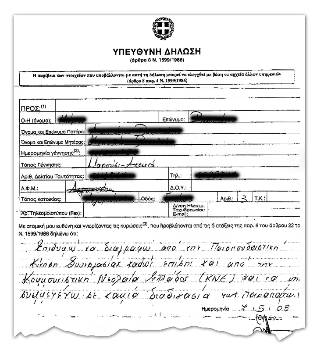 ΥΠΕΥΘΥΝΗ ΔΗΛΩΣΗ
(άρθρο 8 Ν. 1599/1986)
Η ακρίβεια των στοιχείων που υποβάλλονται με αυτή τη δήλωση μπορεί να ελεγχθεί με βάση το αρχείο άλλων υπηρεσιών
(άρθρο 8 παρ. 4 Ν. 1599/1986)
ΠΡΟΣ(1)
Ο-Η Όνομα: Επώνυμο:
Όνομα και Επώνυμο Πατέρα:
Όνομα και Επώνυμο Μητέρας:
Ημερομηνία γέννησης(2):
Τόπος Γέννησης:
Αριθ. Δελτίου Ταυτότητας: Τηλ.:
Α.Φ.Μ.: Δ.Ο.Υ.:
Τόπος κατοικίας: Αριθ.: 3 Τ.Κ.:
Αρ.Τηλεομοιοτύπου(Fax):
Με ατομική μου ευθύνη και γνωρίζοντας τις κυρώσεις(3), που προβλέπονται από τις διατάξεις της παρ. 6 του άρθρου 22 του
Ν. 1599/1986 δηλώνω ότι:
Επιθυμώ να διαγραφώ από την Πανσπουδαστική
Κίνηση Συνεργασίας καθώς επίσης και από την
Κομμουνιστική Νεολαία Ελλάδος (ΚΝΕ) και να μη
συμμετέχω σε καμία διαδικασία των παραπάνω
Ημερομηνία